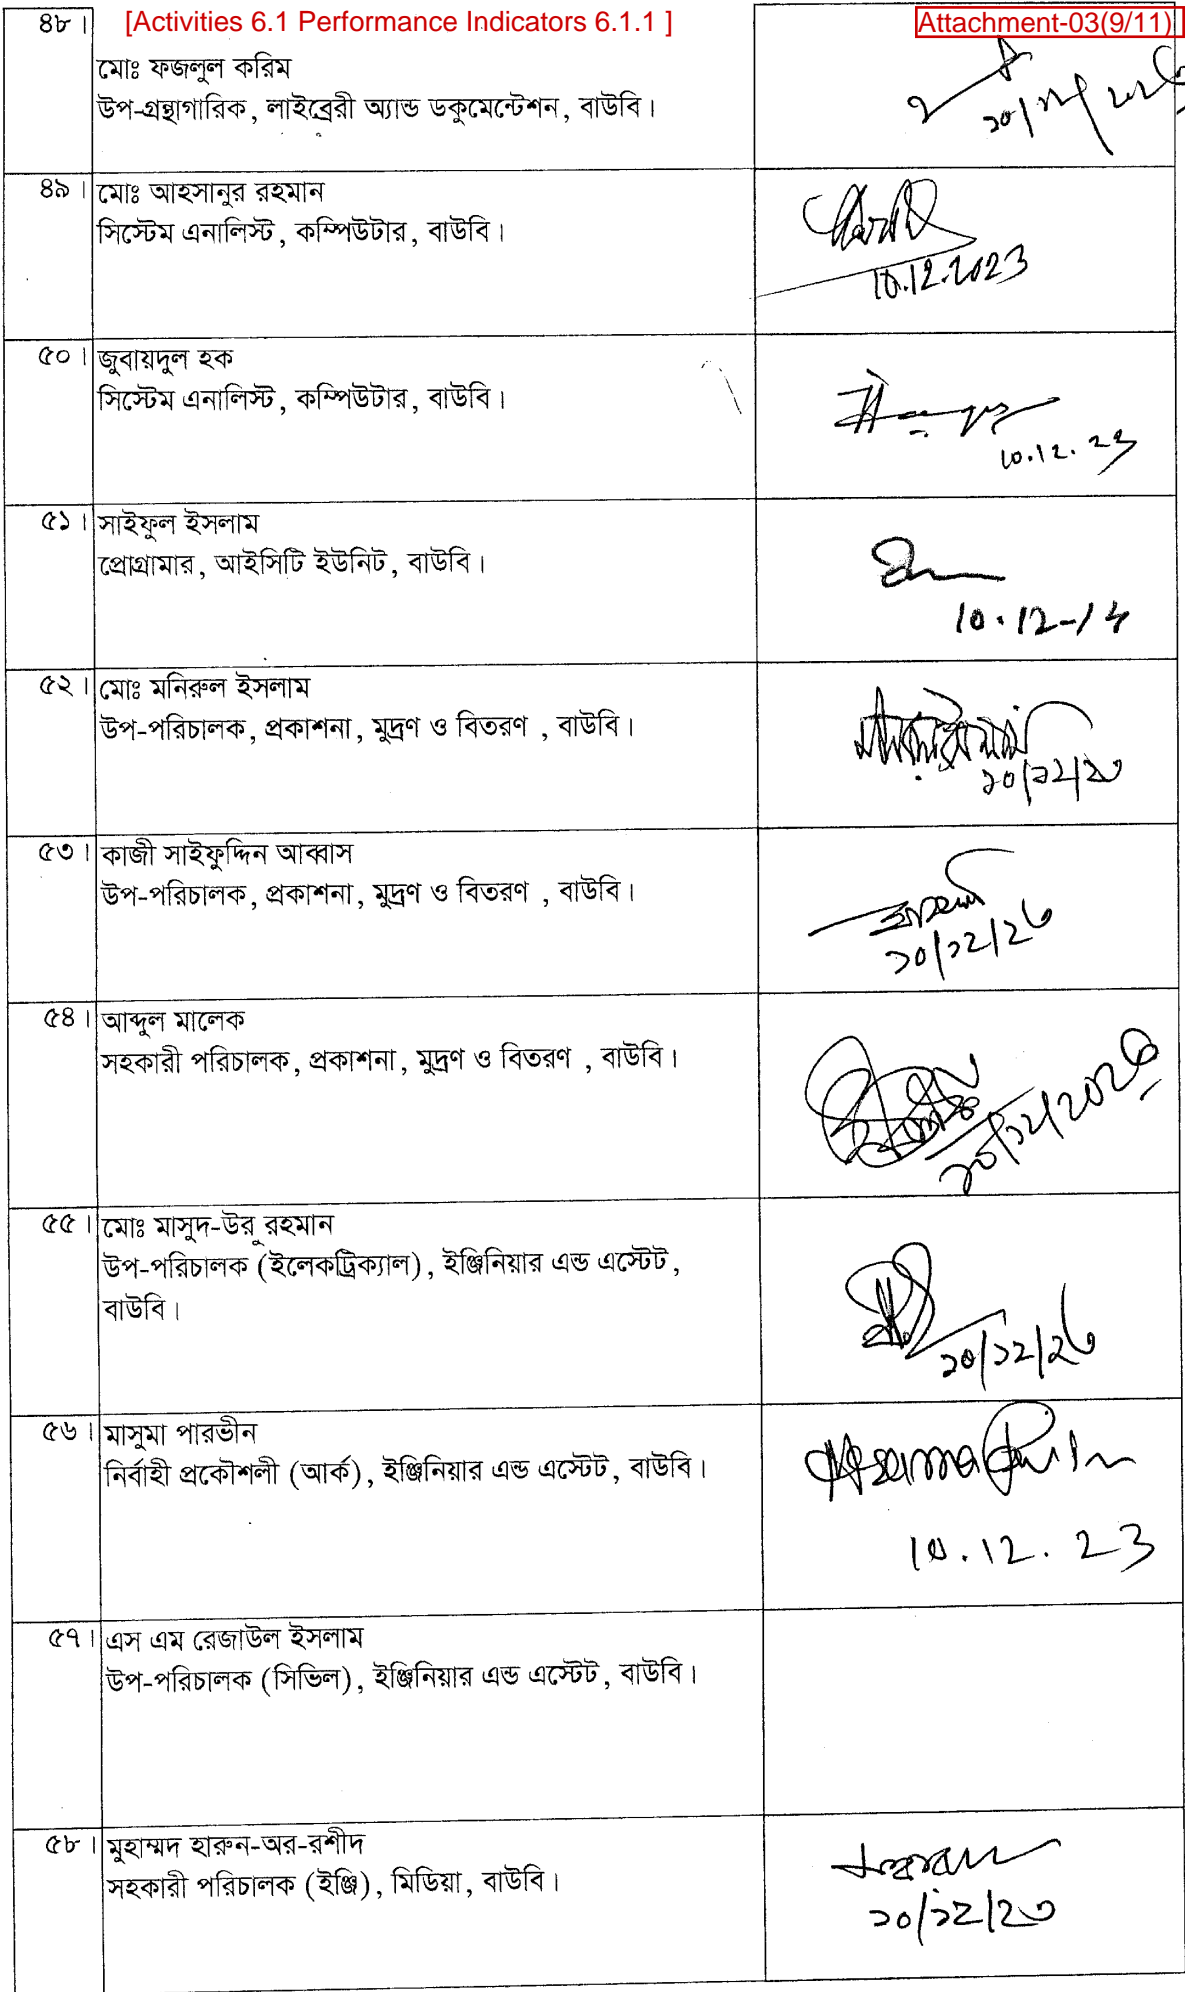 ৪৮। [Activities 6.1 Performance Indicators 6.1.1 ] Attachment-03(9/11)
মোঃ ফজলুল করিম
উপ-গ্রন্থাগারিক, লাইব্রেরী অ্যান্ড ডকুমেন্টেশন, বাউবি।
৪৯। মোঃ আহসানুর রহমান
সিস্টেম এনালিস্ট, কম্পিউটার, বাউবি।
10.12.2023
৫০। জুবায়দুল হক
সিস্টেম এনালিস্ট, কম্পিউটার, বাউবি।
10.12.23
৫১। সাইফুল ইসলাম
প্রোগ্রামার, আইসিটি ইউনিট, বাউবি।
৫২। মোঃ মনিরুল ইসলাম
উপ-পরিচালক, প্রকাশনা, মুদ্রণ ও বিতরণ , বাউবি।
১০/১২/২৩
৫৩। কাজী সাইফুদ্দিন আব্বাস
উপ-পরিচালক, প্রকাশনা, মুদ্রণ ও বিতরণ , বাউবি।
১০/১২/২৩
৫৪। আব্দুল মালেক
সহকারী পরিচালক, প্রকাশনা, মুদ্রণ ও বিতরণ , বাউবি।
১০/১২/২০২৩
৫৫। মোঃ মাসুদ-উর্ রহমান
উপ-পরিচালক (ইলেকট্রিক্যাল), ইঞ্জিনিয়ার এন্ড এস্টেট,
বাউবি।
১০/১২/২৩
৫৬। মাসুমা পারভীন
নির্বাহী প্রকৌশলী (আর্ক), ইঞ্জিনিয়ার এন্ড এস্টেট, বাউবি।
10.12.23
৫৭। এস এম রেজাউল ইসলাম
উপ-পরিচালক (সিভিল), ইঞ্জিনিয়ার এন্ড এস্টেট, বাউবি।
৫৮। মুহাম্মদ হারুন-অর-রশীদ
সহকারী পরিচালক (ইঞ্জি), মিডিয়া, বাউবি।
১০/১২/২৩